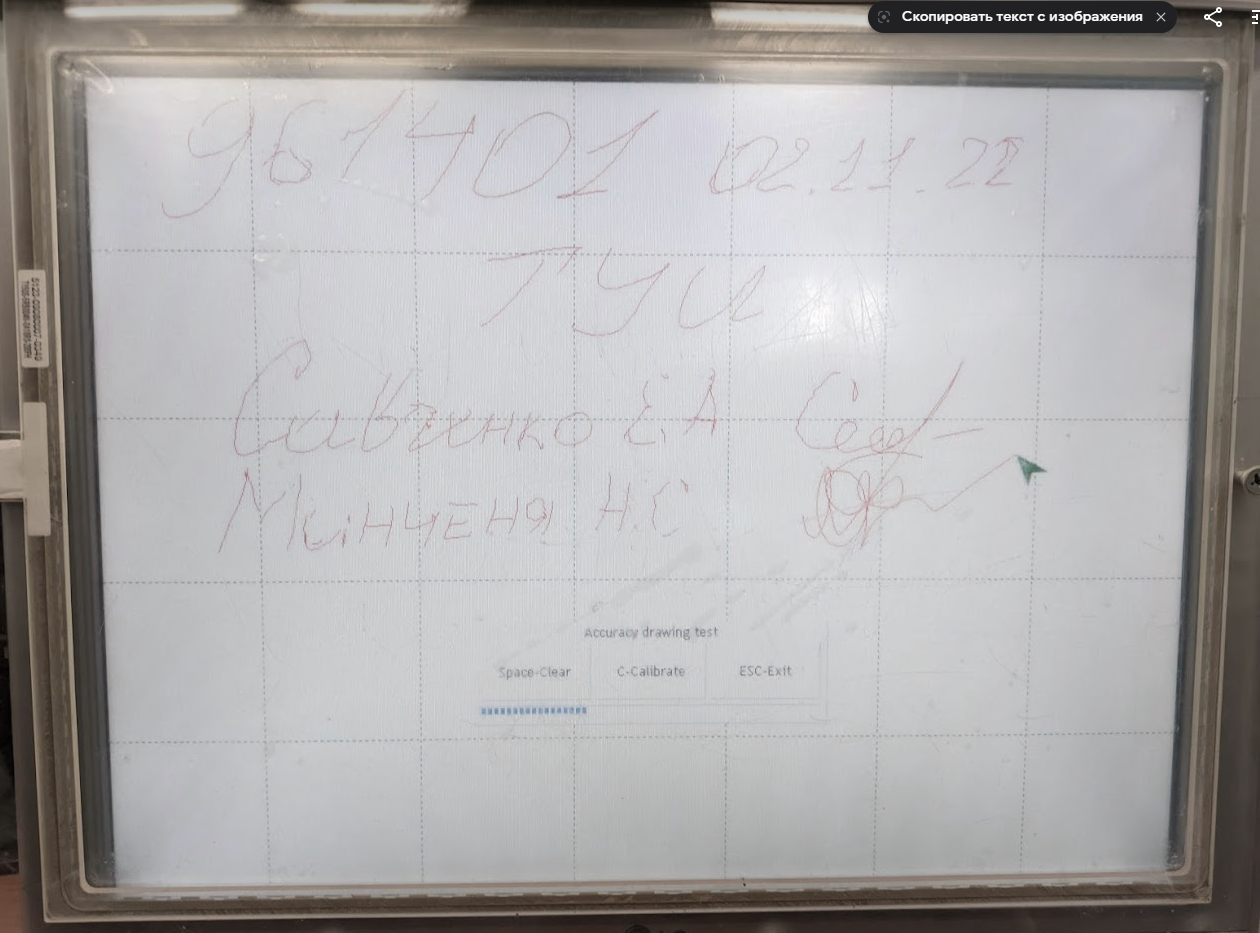 Скопировать текст с изображения
961401 02.11.22
ТУИ
Савченко Е.А
Минченя Н.С
Accuracy drawing test
Space-Clear C-Calibrate ESC-Exit